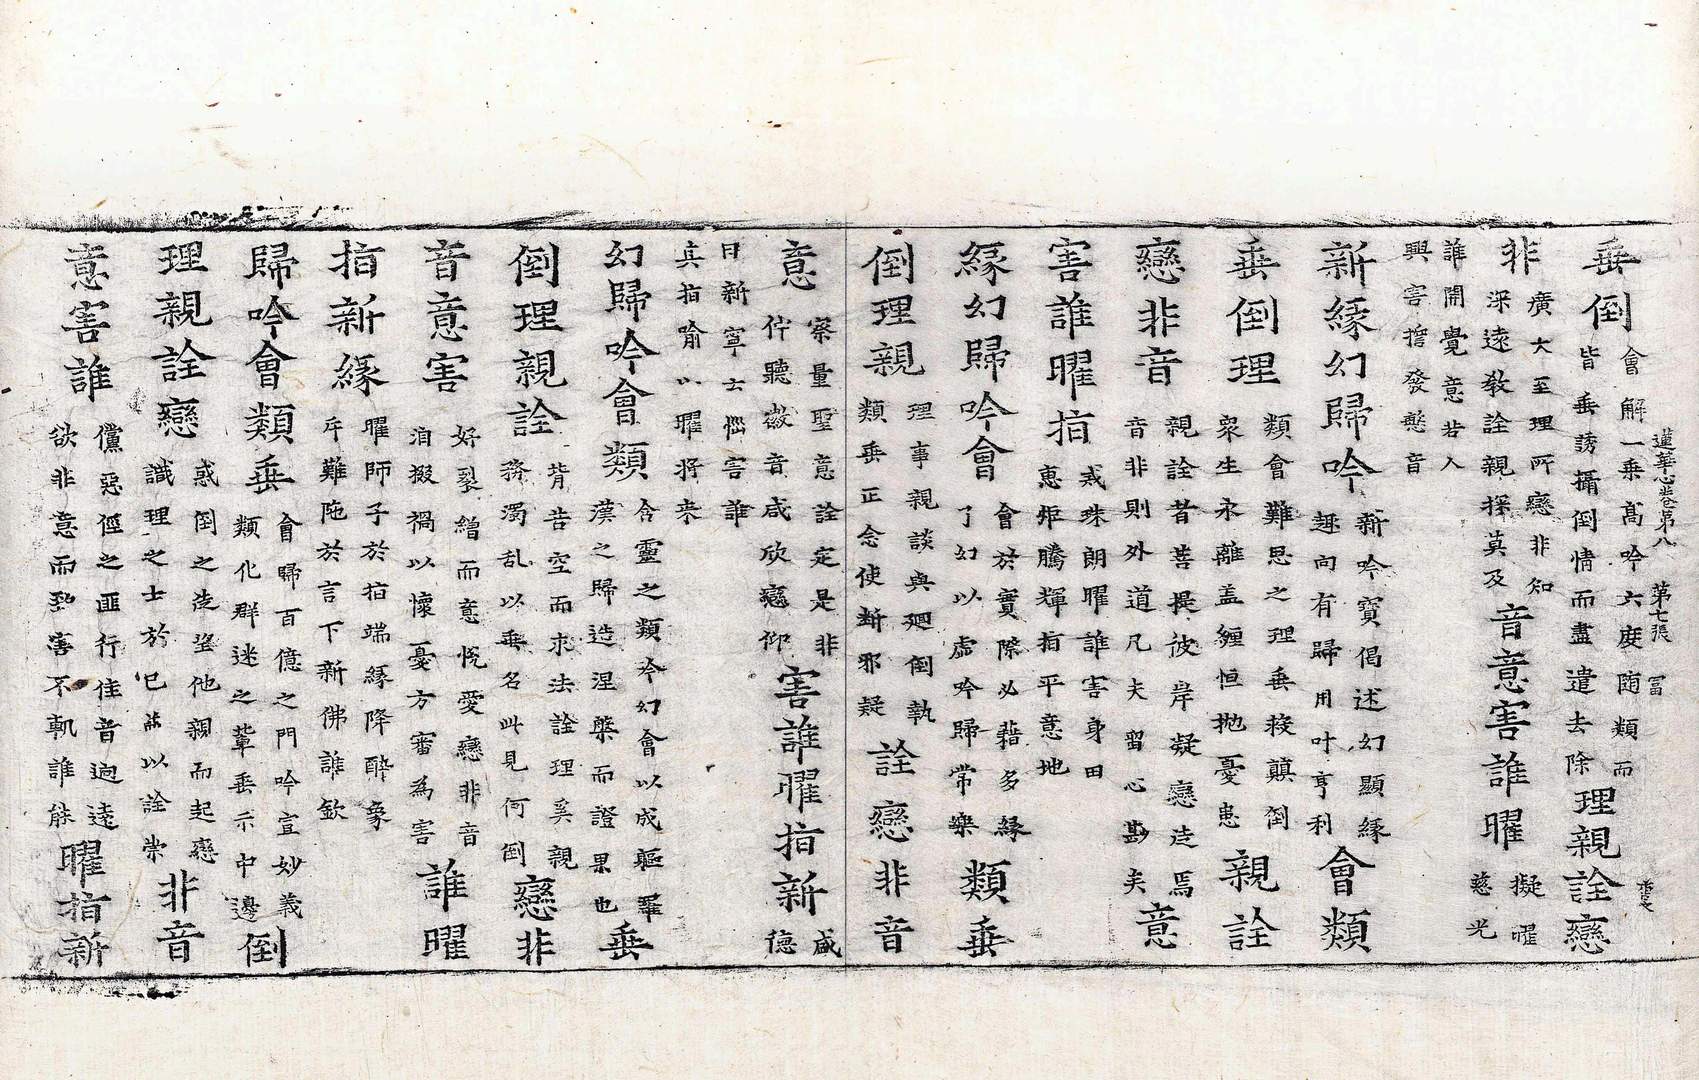 蓮華心卷第八　第七張　冨
垂倒
會解一乘高吟六度随類而
皆垂誘攝倒情而盡遣去除
理親詮戀
非
廣大至理所戀非知
深遠教詮親探莫及
音意害誰曜
擬曜
慈光
誰開覺意若人
興害擔發慙音
新緣幻歸吟
新吟寶偈述幻顯緣
趣向有歸用叶亨利
會類
垂倒理
類會難思之理垂救顛倒
眾生永離盖纏恒抛憂患
親詮
戀非音
親詮者菩提彼岸凝戀迷焉
音非則外道凡夫留心勘矣
意
害誰曜指
戒珠朗曜誰害身田
惠炬騰輝指平意地
緣幻歸吟會
會於實際必藉多緣
了幻以虛吟歸常樂
類垂
倒理親
理事親談與廻倒執
類垂正念使断邪疑
詮戀非音
意
察量聖意詮定是非
佇聽微音咸欣戀仰
害誰曜指新
咸
德
日新寧云惱害誰
真指喻以曜將来
幻歸吟會類
含靈之類今幻會以成軀羅
漢之歸造涅槃而證果也
垂
倒理親詮
背告空而求法詮理奚親
務濁乱以垂名此見何倒
戀非
音意害
好裂繒而意悅愛戀非音
泊掇禍以懷憂方審為害
誰曜
指新緣
曜師子於指端緣降醉象
斥難陁於言下新佛誰欽
歸吟會類垂
會歸百億之門吟宣妙義
類化群迷之輩垂示中邊
倒
理親詮戀
惑倒之迷望他親而起戀
識理之士於己能以詮崇
非音
意害誰
儻惡徑之匪行佳音逈遠
欲非意而到害不軌誰能
曜指新